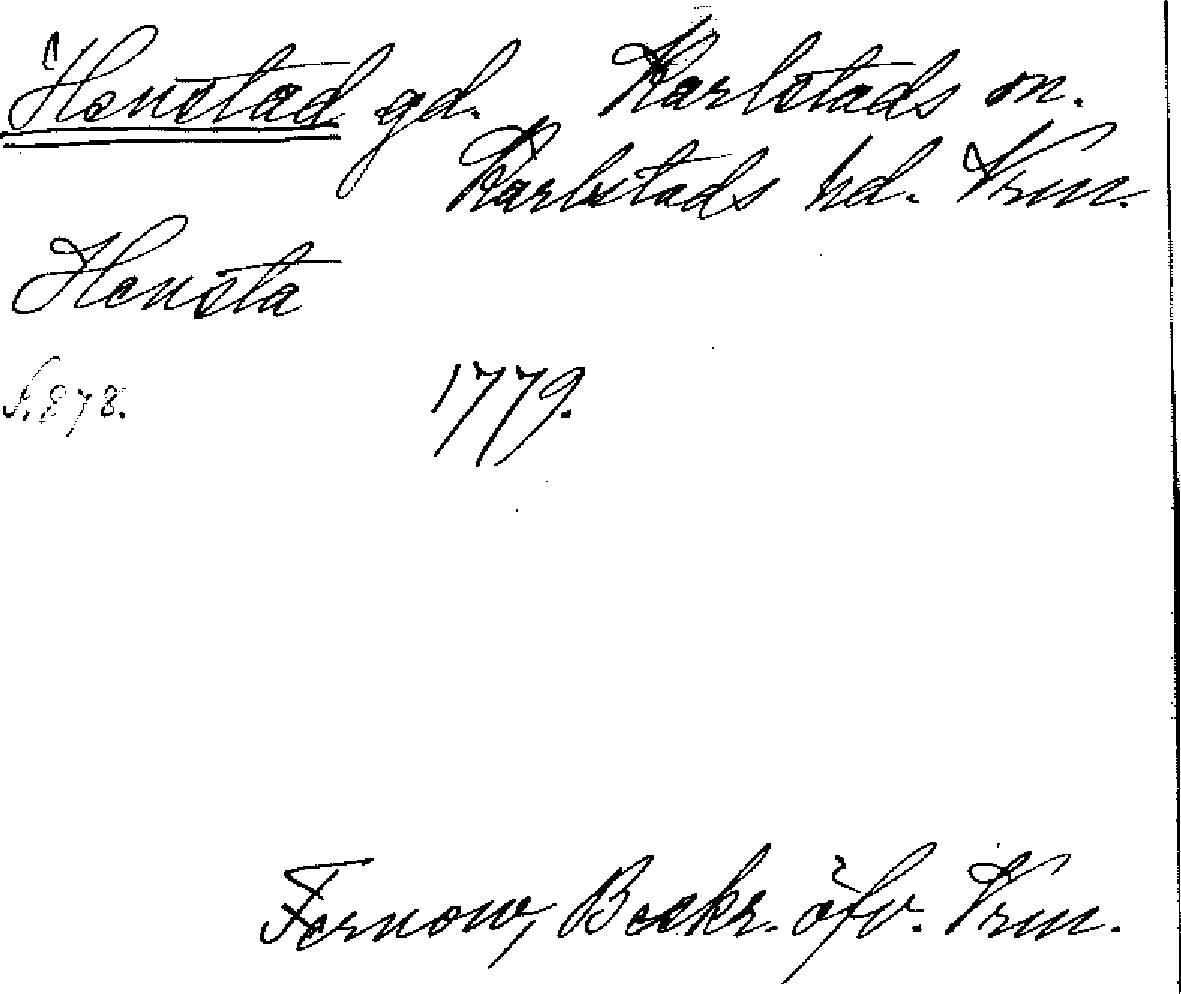 Henstad gd. Karlstads m.
Karlstads hd. Vrm.
Hensta
S. 878. 1779.
Fernow, Beskr. öfv. Vrm.